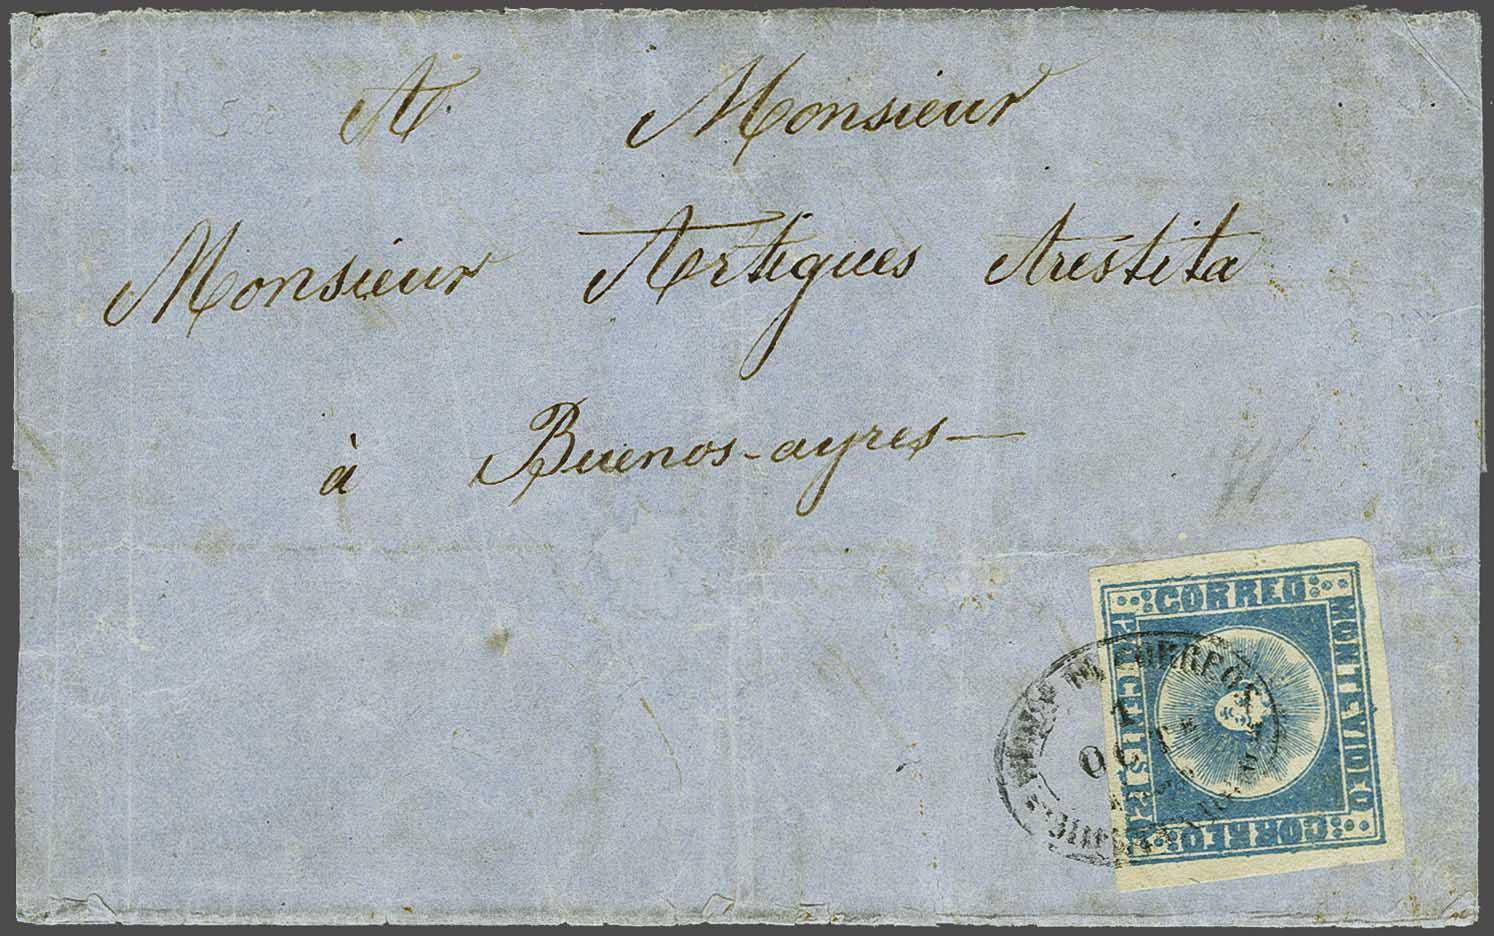 A Monsieur
Monsieur Artigues Arestita
à Buenos-ayres
CORREO
MONTEVIDEO
120 CENTS
CORREO
CORREOS
1
OCT